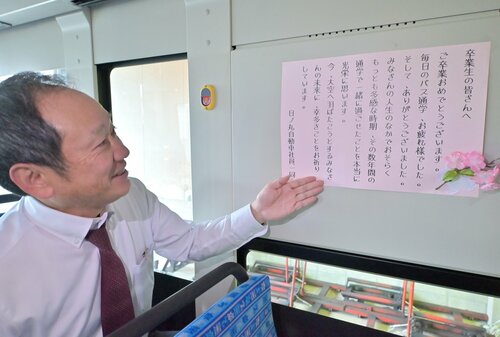 卒業生の皆さんへ
ご卒業おめでとうございます。
毎日のバス通学、お疲れ様でした。
そして、ありがとうございました。
みなさんの人生のなかでおそらく
もっとも多感な時期、その数年間の
通学で一緒に過ごせたことを本当に
光栄に思います。
今、大空へ羽ばたこうとするみなさ
んの未来に、幸多きことをお祈り
しています。
日ノ丸自動車社員一同